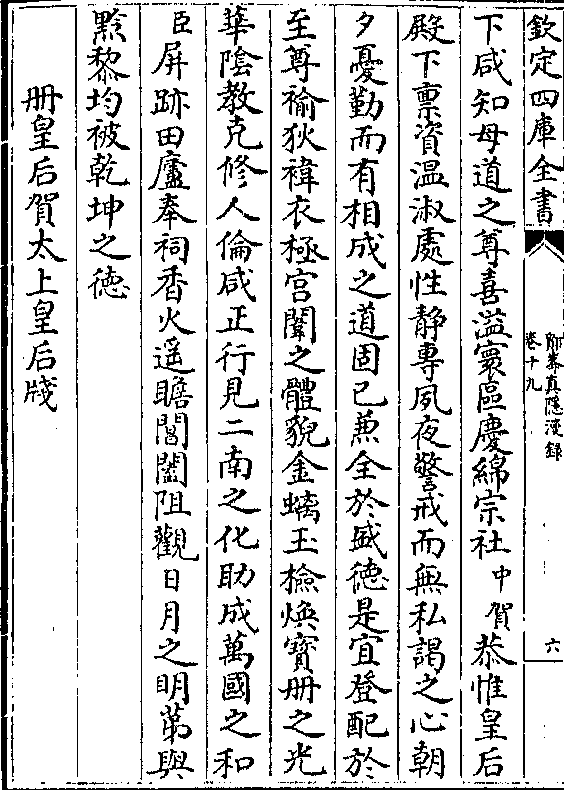 欽定四庫全書
鄮峯真隱漫録
卷十九
六
下咸知母道之尊喜溢寰區慶綿宗社中賀恭惟皇后
殿下禀資温淑處性静專夙夜警戒而無私謁之心朝
夕憂勤而有相成之道固已兼全於盛德是宜登配於
至尊褕狄褘衣極宫闈之體貌金螭玉檢煥寳册之光
華陰教克修人倫咸正行見二南之化助成萬國之和
臣屏跡田廬奉祠香火遥瞻閶闔阻觀日月之明第與
黔黎均被乾坤之德
册皇后賀太上皇后牋